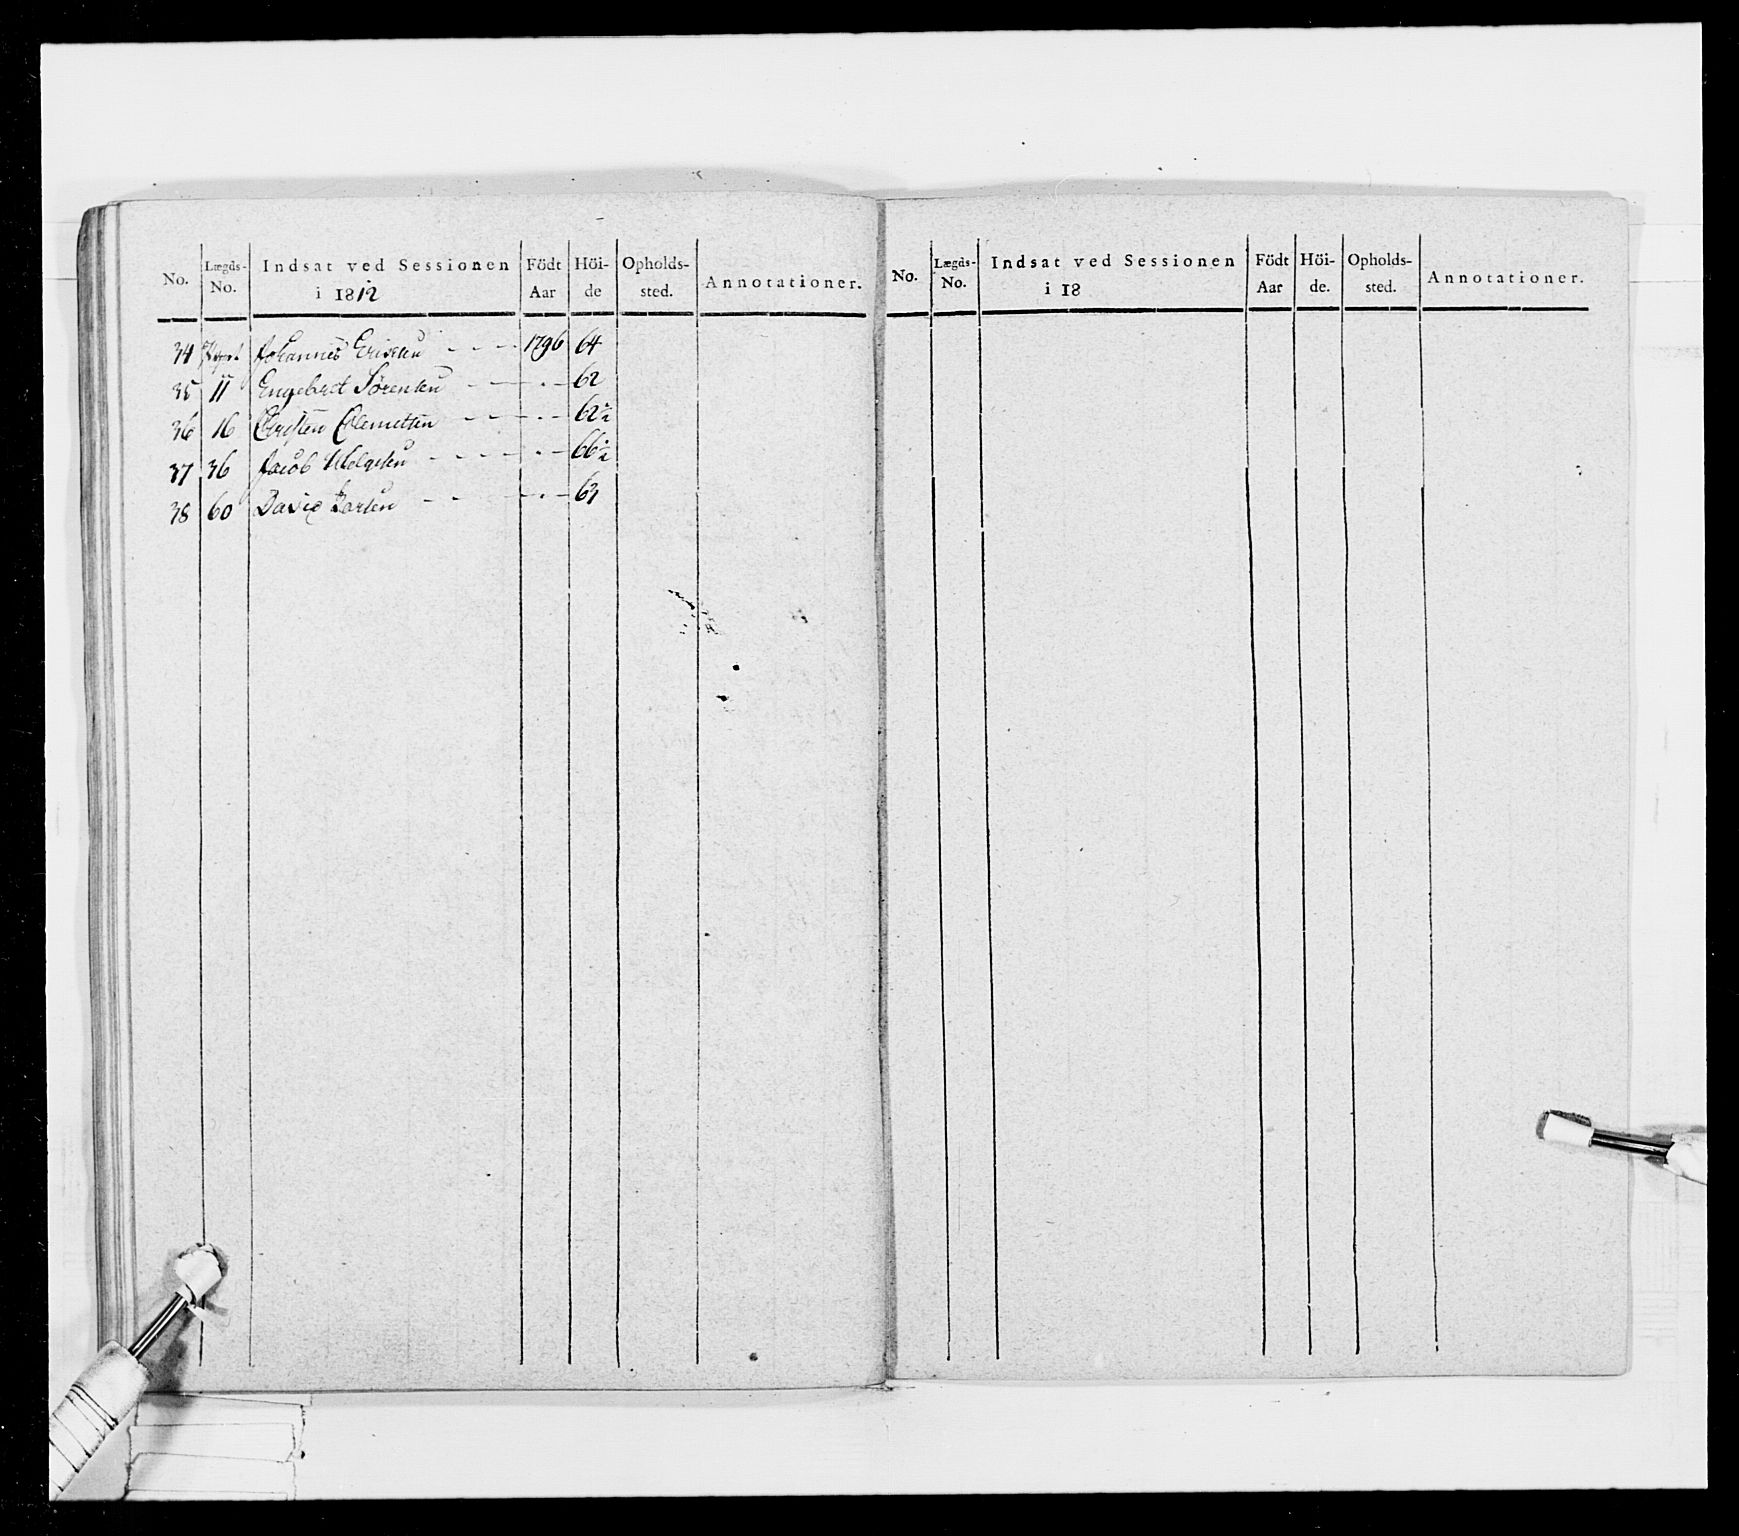 No. Lægds-No. Indsat ved Sessionen i 1812 Födt Aar Höi-de Opholds-sted. Annotationer.
34 Johannes 1796 64
35 11 Engebret Sörensen - - - 62
36 16 Christen Clemetsen - - - 62½
37 36 Jacob Helgesen - - - 66½
38 60 David Larsen - - - 63
No. Lægds-No. Indsat ved Sessionen i 18 Födt Aar Höi-de. Opholds-sted. Annotationer.